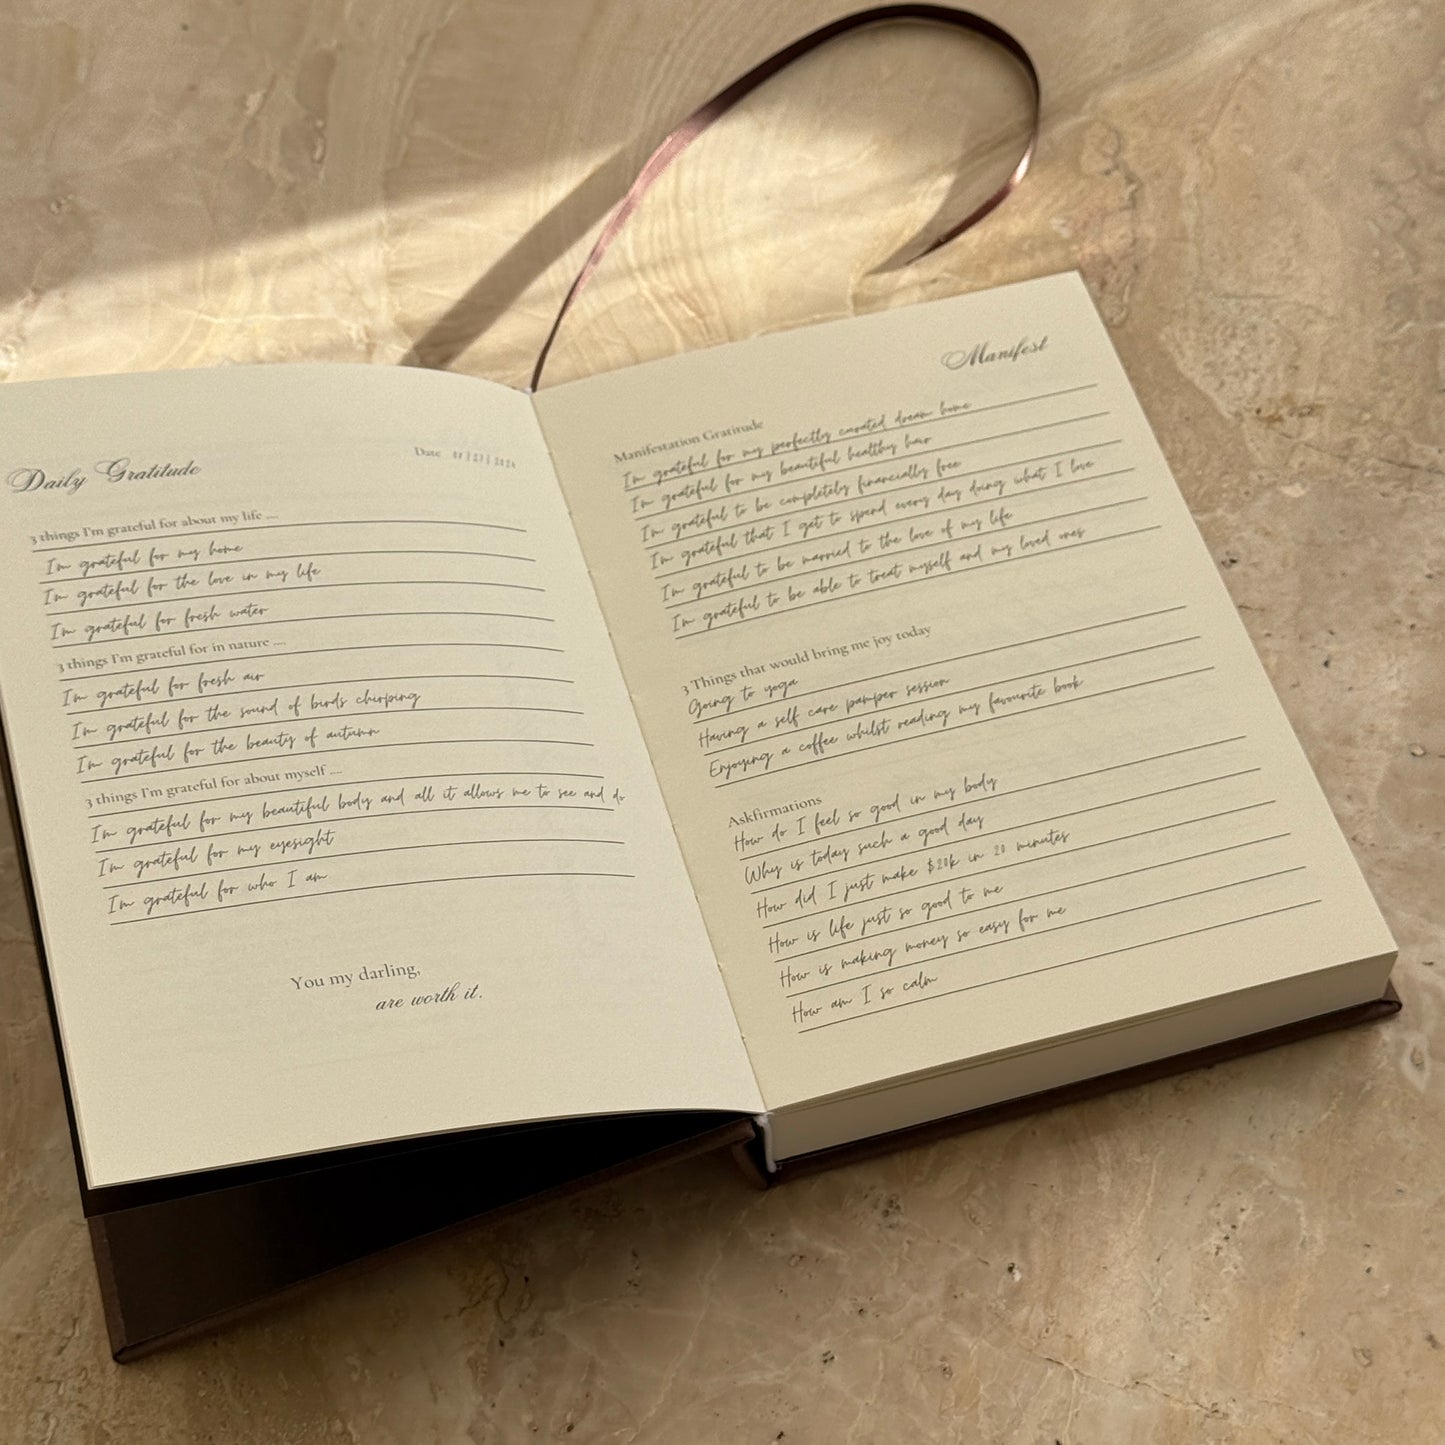 Daily Gratitude
Date
3 things I'm grateful for about my life ....
Im grateful for my home
Im grateful for the love in my life
Im grateful for fresh water
3 things I'm grateful for in nature ....
Im grateful for fresh air
Im grateful for the sound of birds chirping
Im grateful for the beauty of autumn
3 things I'm grateful for about myself ....
Im grateful for my beautiful body and all it allows me to see and do
Im grateful for my eyesight
Im grateful for who I am
You my darling,
are worth it.
Manifest
Manifestation Gratitude
Im grateful for my perfectly curated dream home
Im grateful for my beautiful healthy hair
Im grateful to be completely financially free
Im grateful that I get to spend every day doing what I love
Im grateful to be married to the love of my life
Im grateful to be able to treat myself and my loved ones
3 Things that would bring me joy today
Going to yoga
Having a self care pamper session
Enjoying a coffee whilst reading my favourite book
Askfirmations
How do I feel so good in my body
Why is today such a good day
How did I just make $20k in 20 minutes
How is life just so good to me
How is making money so easy for me
How am I so calm